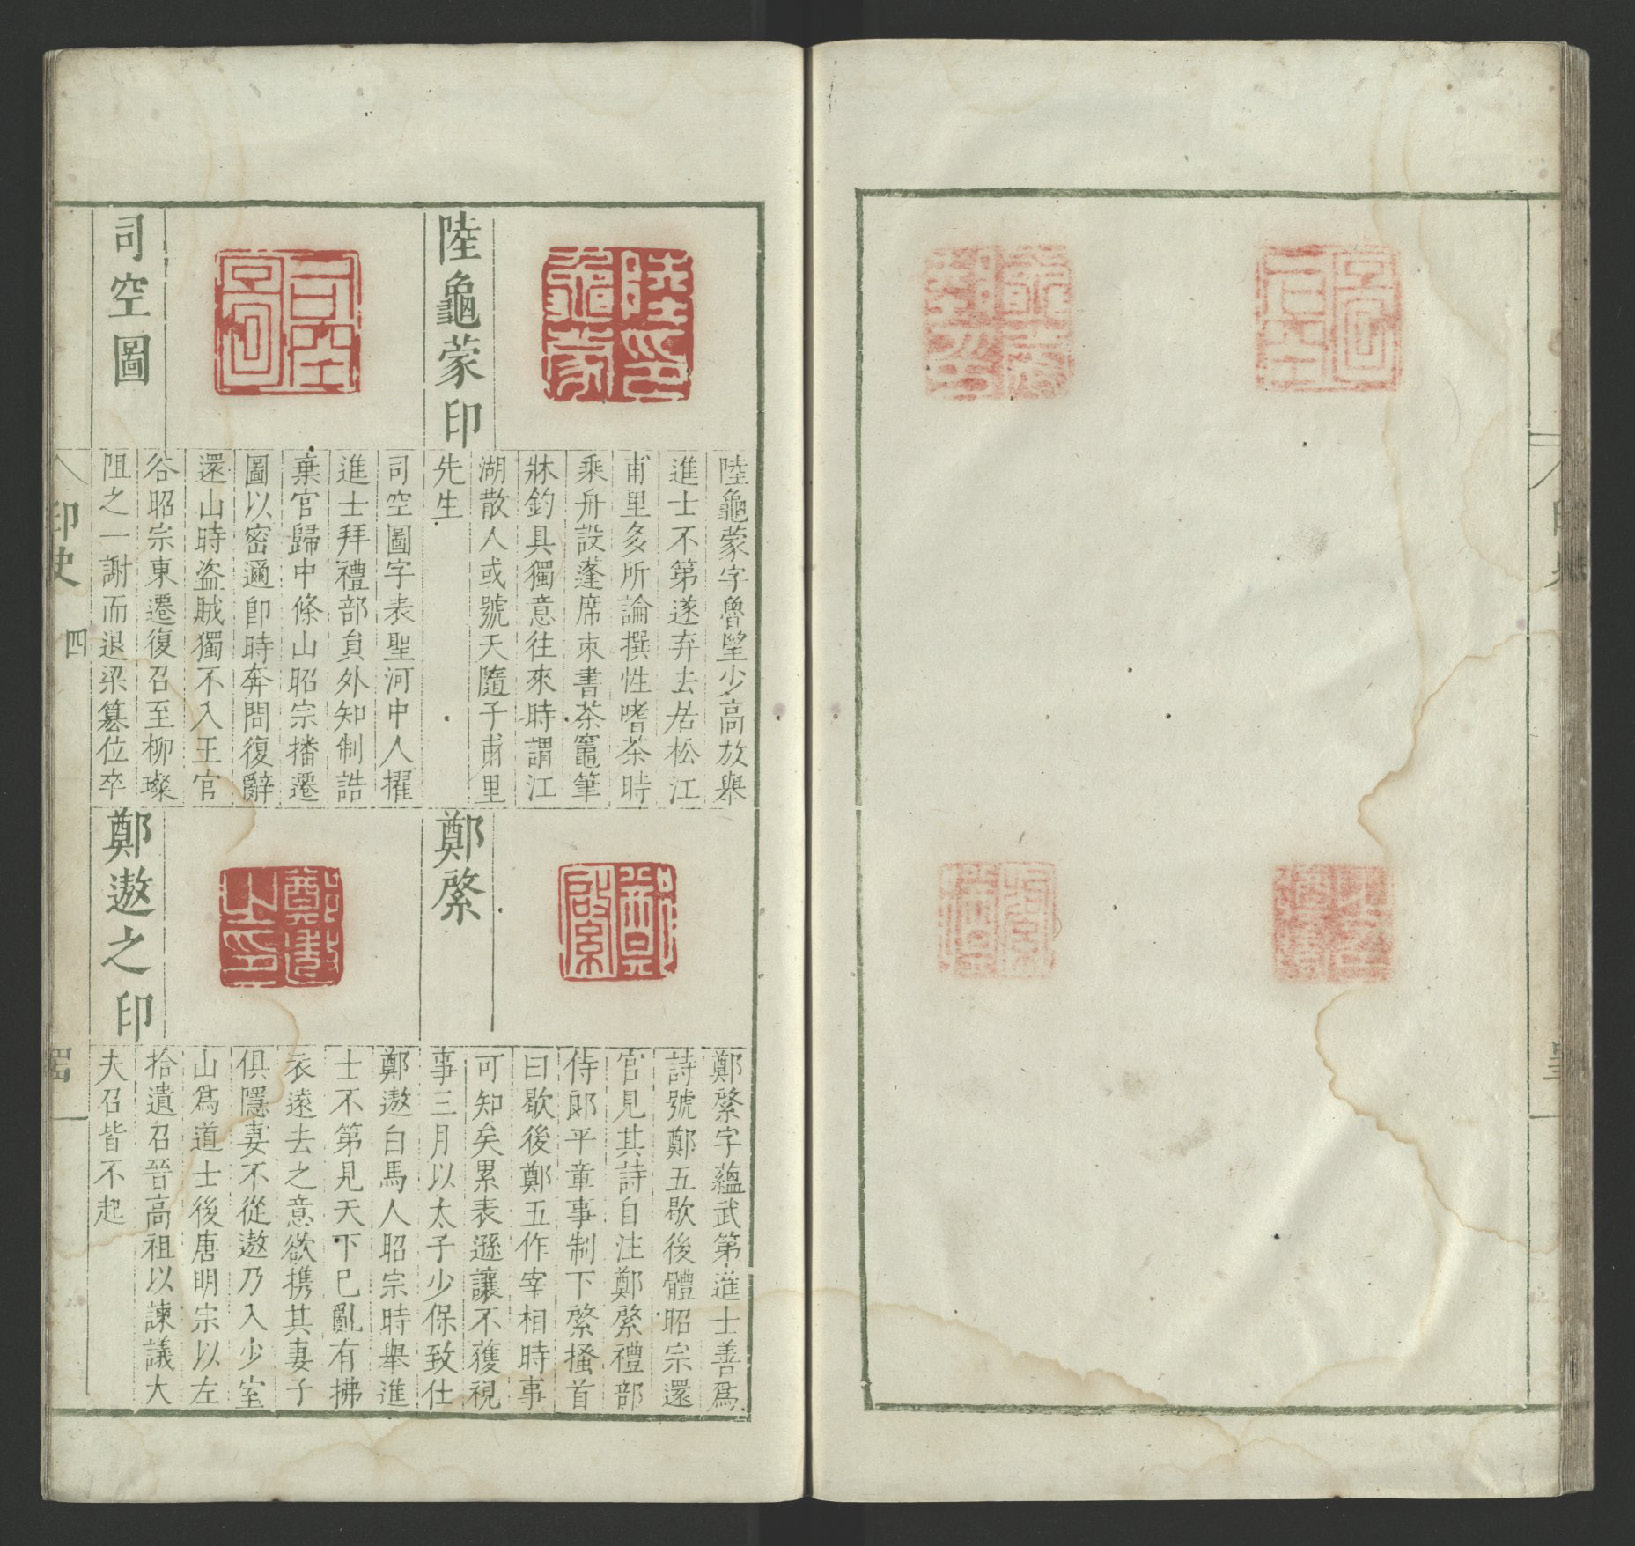 陸龜蒙印
陸龜蒙字魯望少高放舉
進士不第遂弃去居松江
甫里多所論撰性嗜茶時
乘舟設蓬席朿書茶竈筆
牀釣具獨意往來時謂江
湖散人或號天隨子甫里
先生
司空圖
司空圖字表聖河中人擢
進士拜禮部負外知制誥
棄官歸中條山昭宗播遷
圖以密邇卽時奔問復辭
還山時盜賊獨不入王官
谷昭宗東遷復召至柳璨
阻之一謝而退梁簒位卒
鄭綮
鄭綮字蘊武第進士善爲
詩號鄭五歇後體昭宗還
官見其詩自注鄭綮禮部
侍郎平章事制下綮搔首
曰歇後鄭五作宰相時事
可知矣累表遜讓不獲視
事三月以太子少保致仕
鄭遨之印
鄭遨白馬人昭宗時舉進
士不第見天下已亂有拂
衣遠去之意欲携其妻子
俱隱妻不從遨乃入少室
山爲道士後唐明宗以左
拾遺召晉高祖以諫議大
夫召皆不起
印史 四